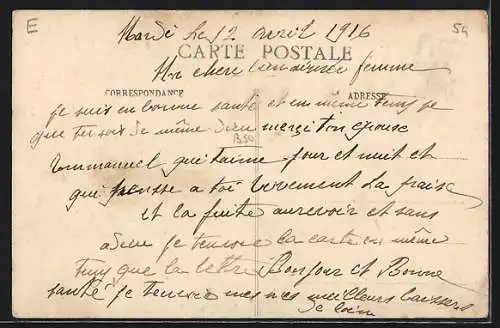 E
54
Mardi le 12 avril 1916
CARTE POSTALE
Ma chere bien aimée femme
CORRESPONDANCE
ADRESSE
je suis en bonne santé et en même temps je
que tu sois de même dieu merçi ton epouse
B50
Emmanuel qui t'aime jour et nuit et
qui pensse a toi vivement la
et la fuite aurevoir et sans
adieu je t'envoie la carte en même
temps que la lettre Bonjour et Bonne
santé je t'envoie mes mes meilleurs baissers
de loin